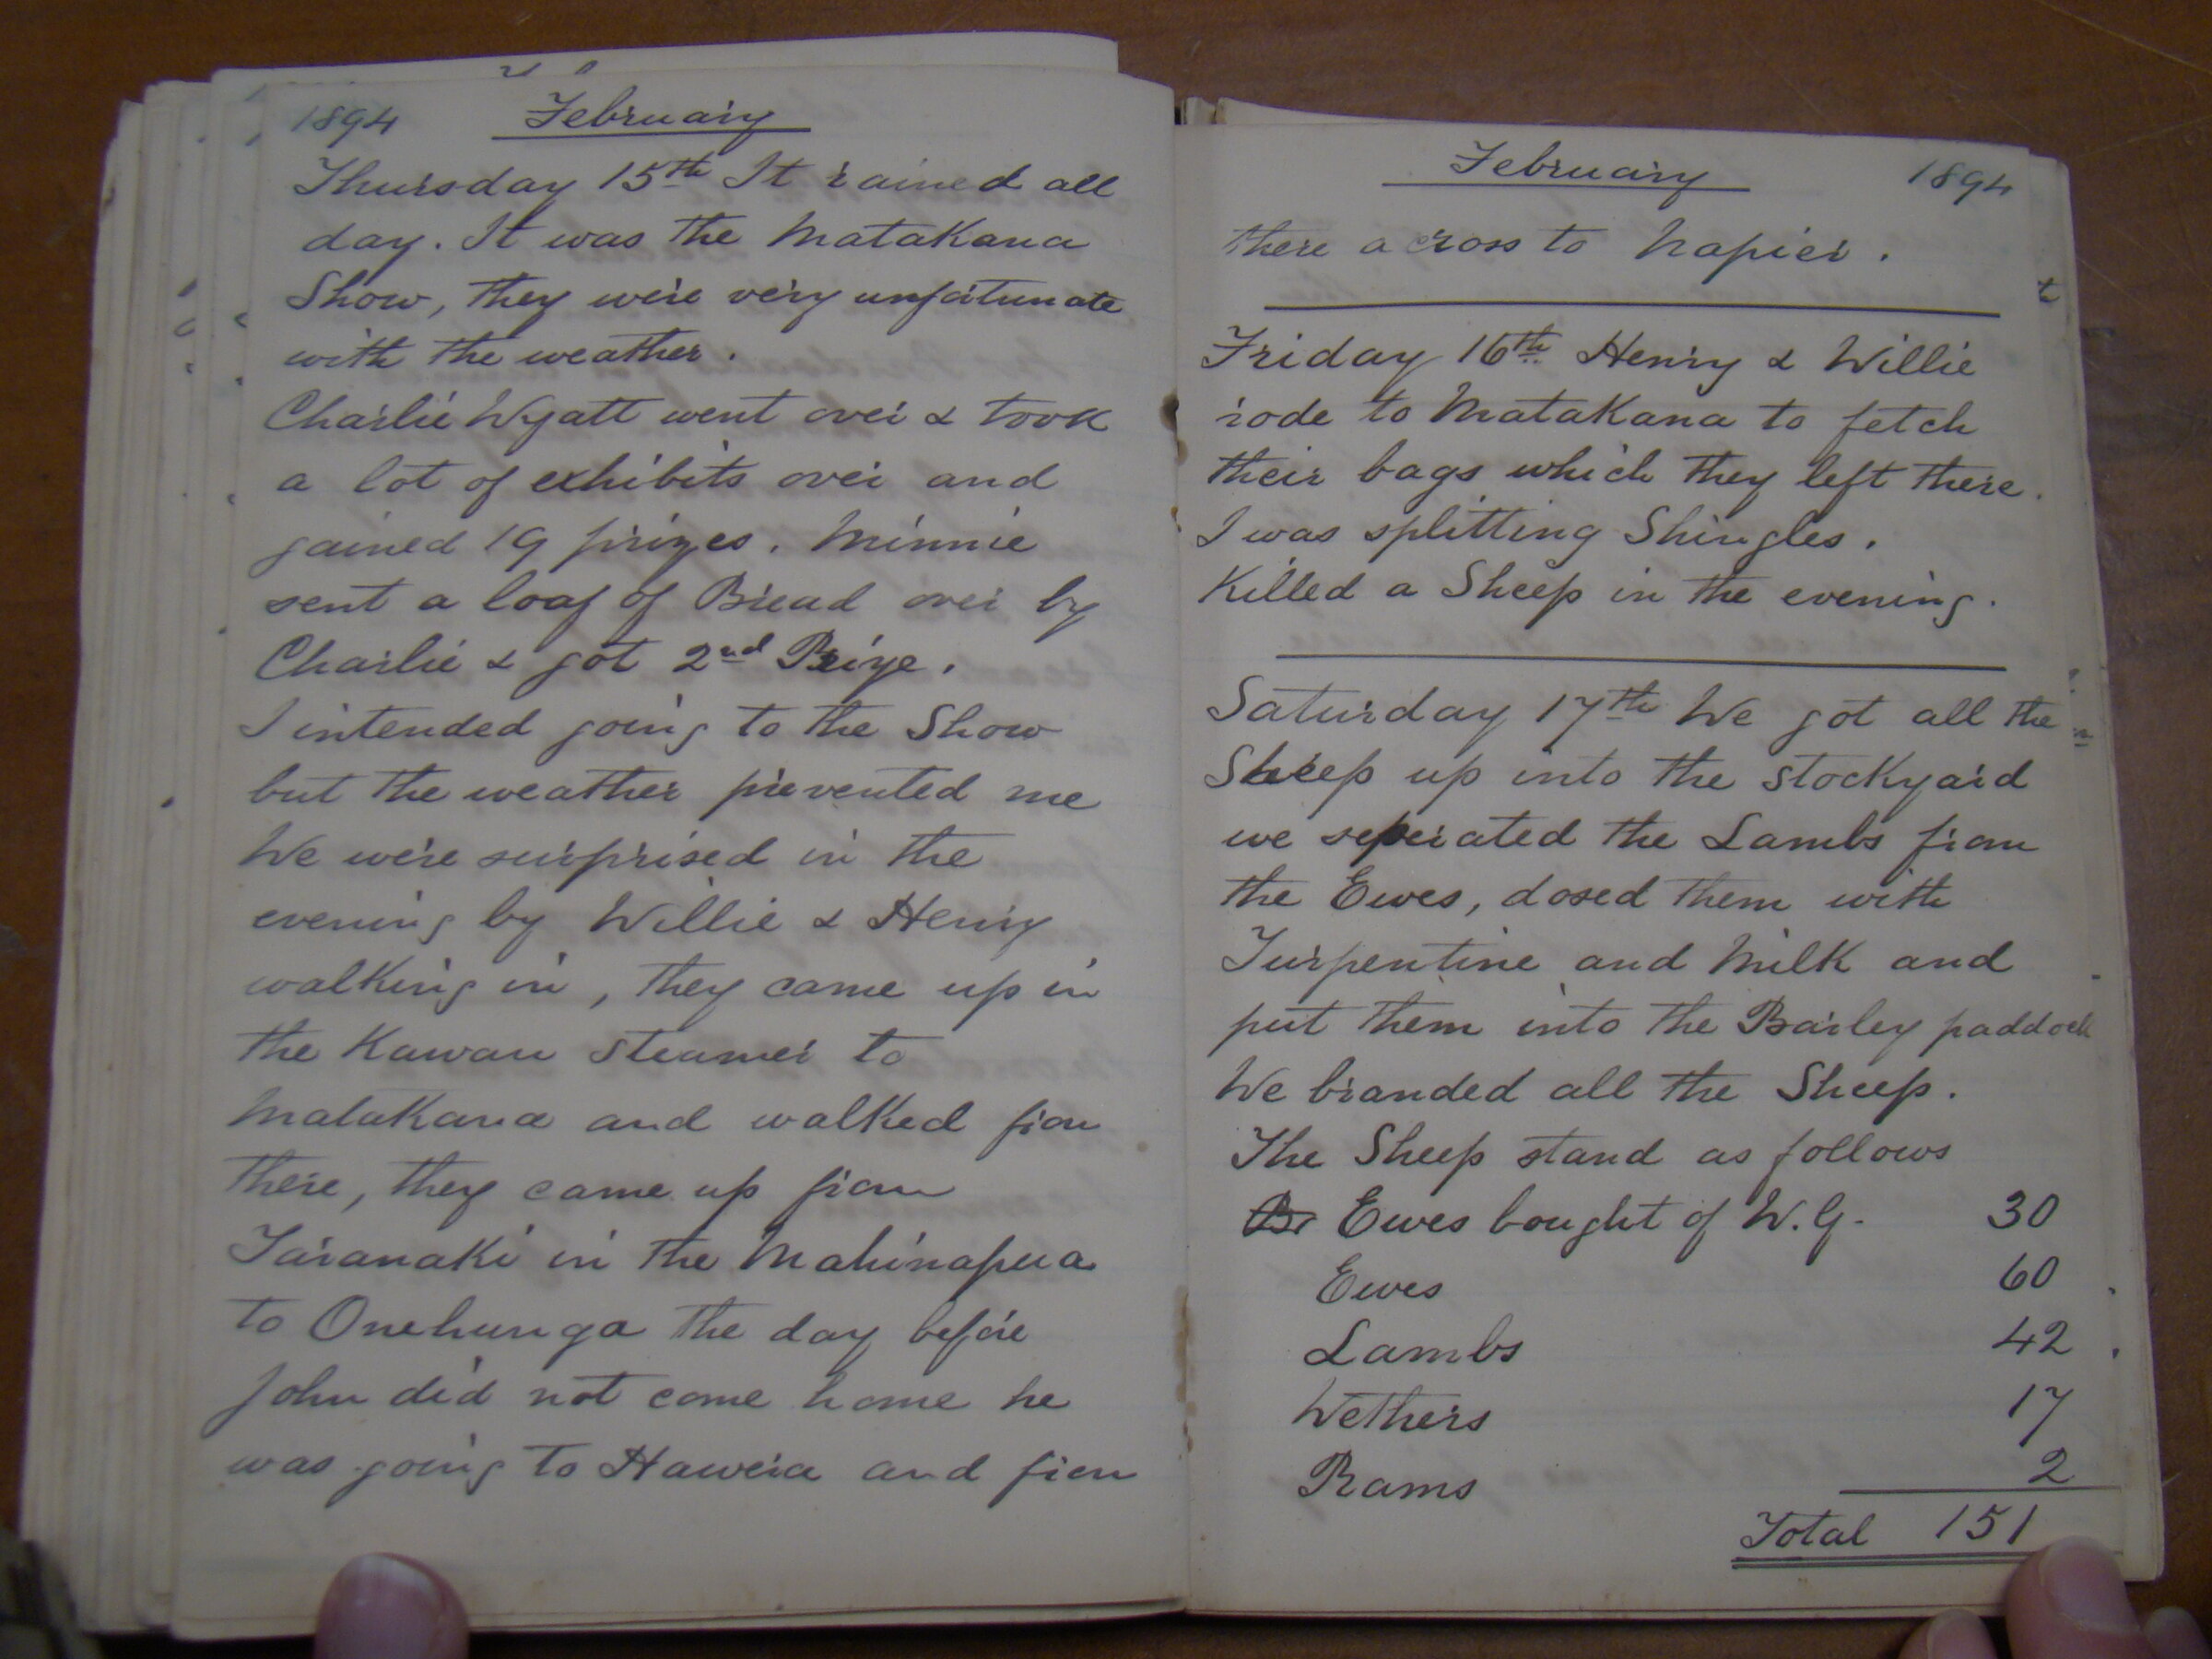 1894 February
Thursday 15th It rained all
day. It was the Matakana
Show, they were very unfortunate
with the weather.
Charlie Wyatt went over & took
a lot of exhibits over and
gained 19 prizes. Minnie
sent a loaf of Bread over by
Charlie & got 2nd Prize.
I intended going to the Show
but the weather prevented me
We were surprised in the
evening by Willie & Henry
walking in, they came up in
the Kawau steamer to
Matakana and walked from
there, they came up from
Taranaki in the Mahinapua
to Onehunga the day before
John did not come home he
was going to Hawera and from
February 1894
there across to Napier.
Friday 16th Henry & Willie
rode to Matakana to fetch
their bags which they left there.
I was splitting Shingles.
Killed a Sheep in the evening.
Saturday 17th We got all the
Sheep up into the stockyard
we seperated the Lambs from
the Ewes, dosed them with
Turpentine and Milk and
put them into the Barley paddock
We branded all the Sheep.
The Sheep stand as follows
Br Ewes bought of W.G. 30
Ewes 60
Lambs 42
Wethers 17
Rams 2
Total 151